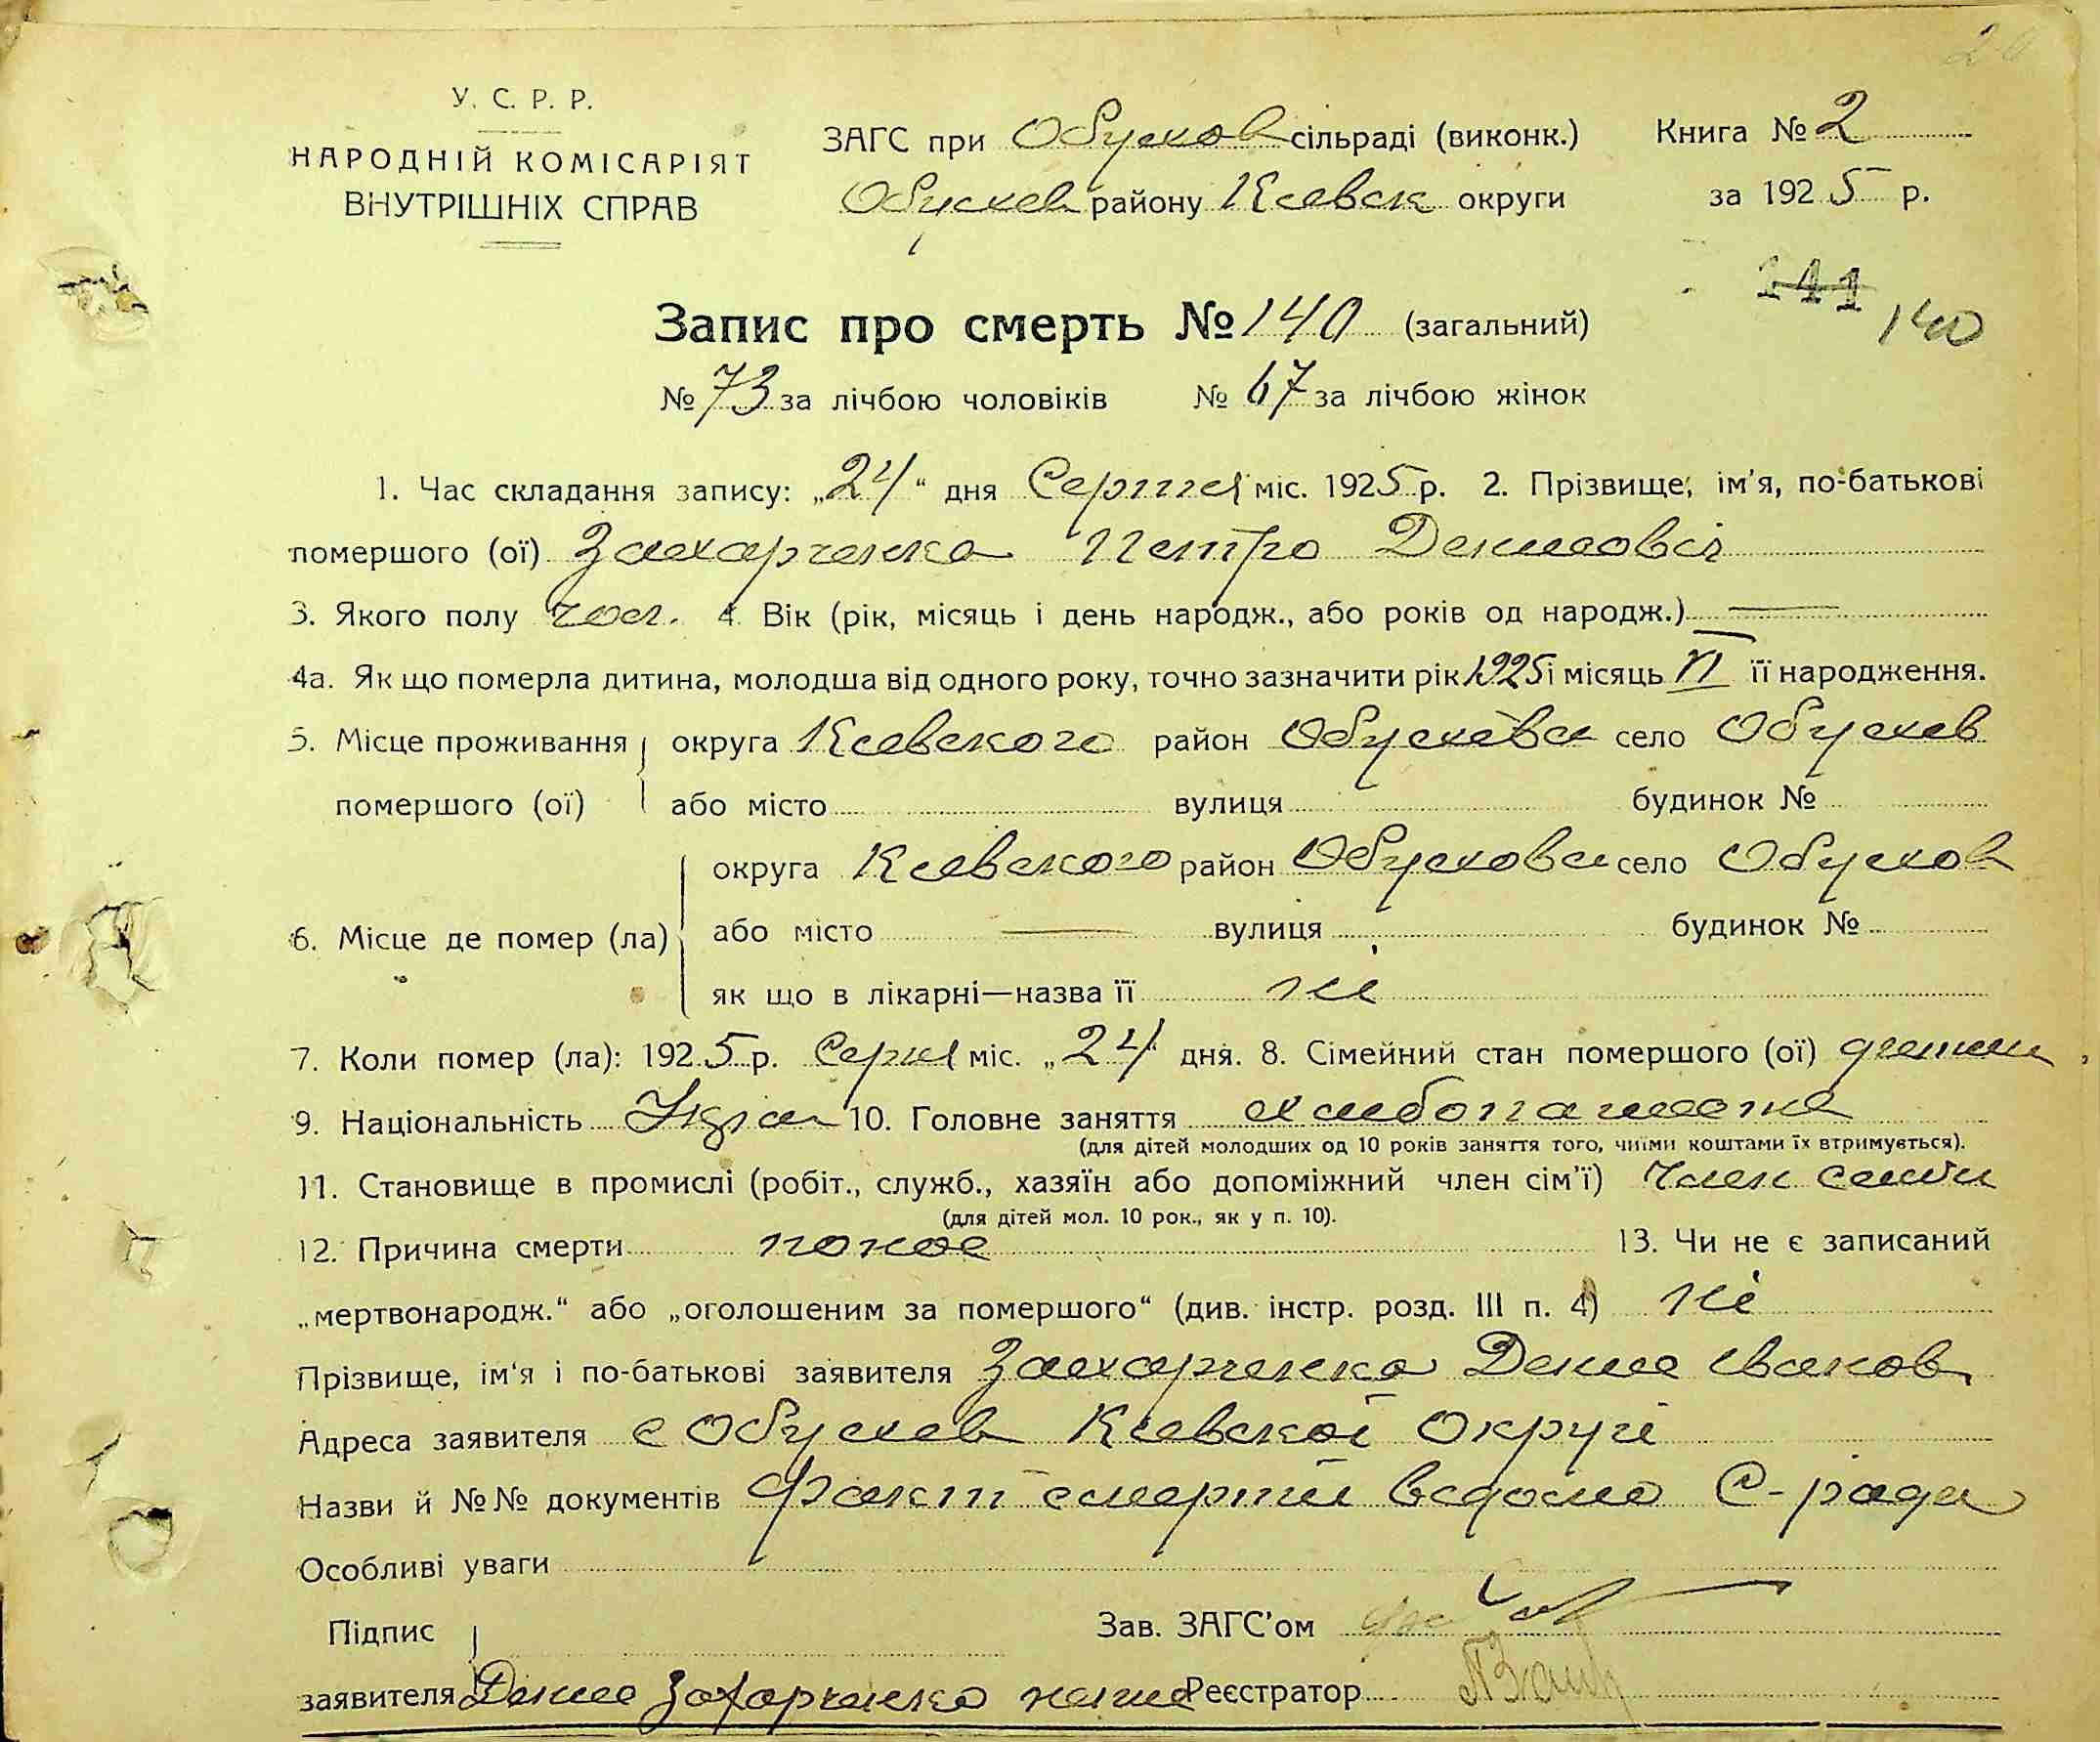 20
У. С. Р. Р.
НАРОДНІЙ КОМІСАРІЯТ
ВНУТРІШНІХ СПРАВ
ЗАГС при Обухов сільраді (виконк.)
Обухов району Киевск округи
Книга № 2
за 1925 р.
141 140
Запис про смерть № 140 (загальний)
№ 73 за лічбою чоловіків № 67 за лічбою жінок
1. Час складання запису: „24“ дня Серпня міс. 1925 р. 2. Прізвище, ім'я, по-батькові
помершого (ої) Захарченко Петро Денисовіч
3. Якого полу чол. 4. Вік (рік, місяць і день народж., або років од народж.) —
4а. Як що померла дитина, молодша від одного року, точно зазначити рік 1925 і місяць VI її народження.
5. Місце проживання помершого (ої) округа Киевского район Обухева село Обухев
або місто вулиця будинок №
6. Місце де помер (ла) округа Киевского район Обухова село Обухов
або місто — вулиця будинок №
як що в лікарні—назва її ні
7. Коли помер (ла): 1925 р. Серпня міс. „24“ дня. 8. Сімейний стан помершого (ої)
9. Національність Укра 10. Головне заняття
(для дітей молодших од 10 років заняття того, чиїми коштами їх втримується).
11. Становище в промислі (робіт., служб., хазяїн або допоміжний член сім'ї) член семьи
(для дітей мол. 10 рок., як у п. 10).
12. Причина смерти понос 13. Чи не є записаний
„мертвонародж.“ або „оголошеним за помершого“ (див. інстр. розд. III п. 4) ні
Прізвище, ім'я і по-батькові заявителя Захарченко Денис Іванов
Адреса заявителя с Обухев Киевскоі Округі
Назви й №№ документів Факт смерти ведомо С-рада
Особливі уваги
Підпис Зав. ЗАГС'ом
заявителя Денис Захарченко Реєстратор